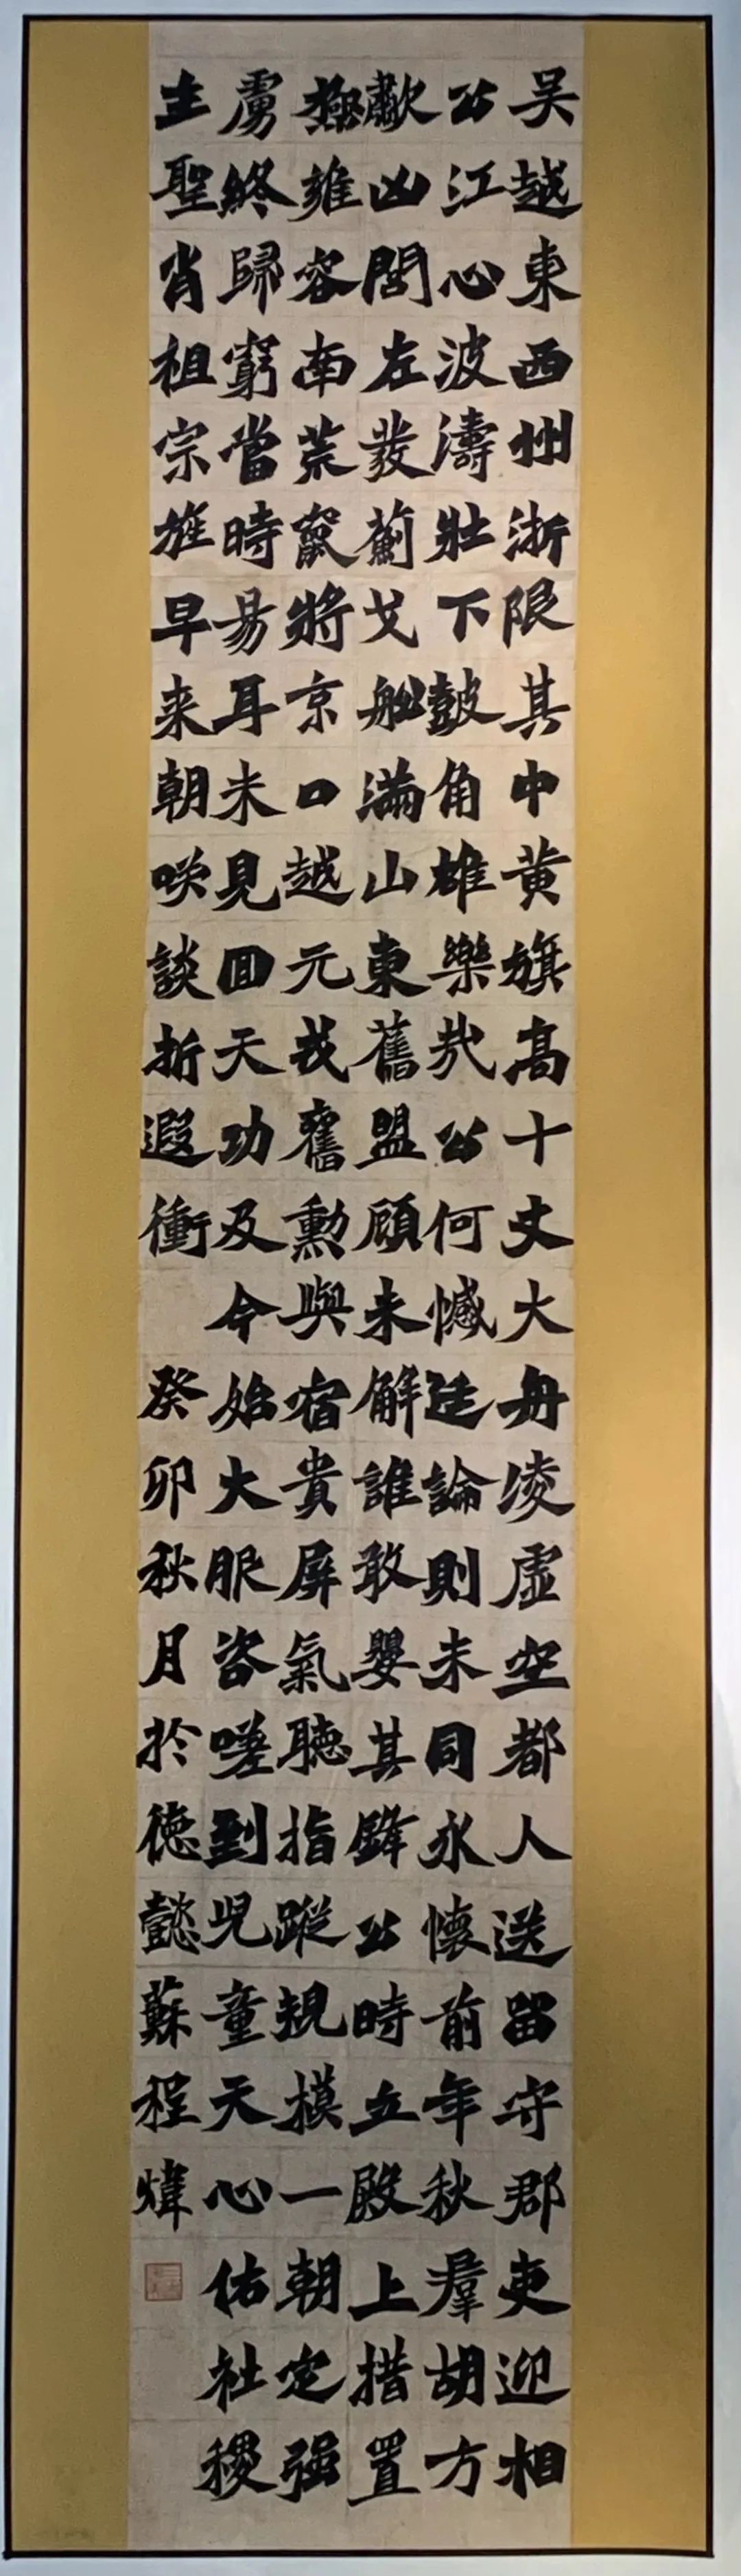 吴越東西州浙限其中黄旗高十丈大舟凌虚空都人送留守郡吏迎相
公江心波濤壯下鼓角雄樂哉公何憾廷論則未同永懷前年秋羣胡方
歗凶閭左發薊戈船滿山東舊盟顧未解誰敢嬰其鋒公時立殿上措置
極雍容南荒竄將京口越元戎舊勳與宿貴屏氣聽指蹤規模一朝定强
虜終歸窮當時易耳未見囬天功及今始大服咨嗟到兒童天心佑社稷
主聖肖祖宗旌早来朝咲談折遐衝 癸卯秋月於德懿蘇程煒